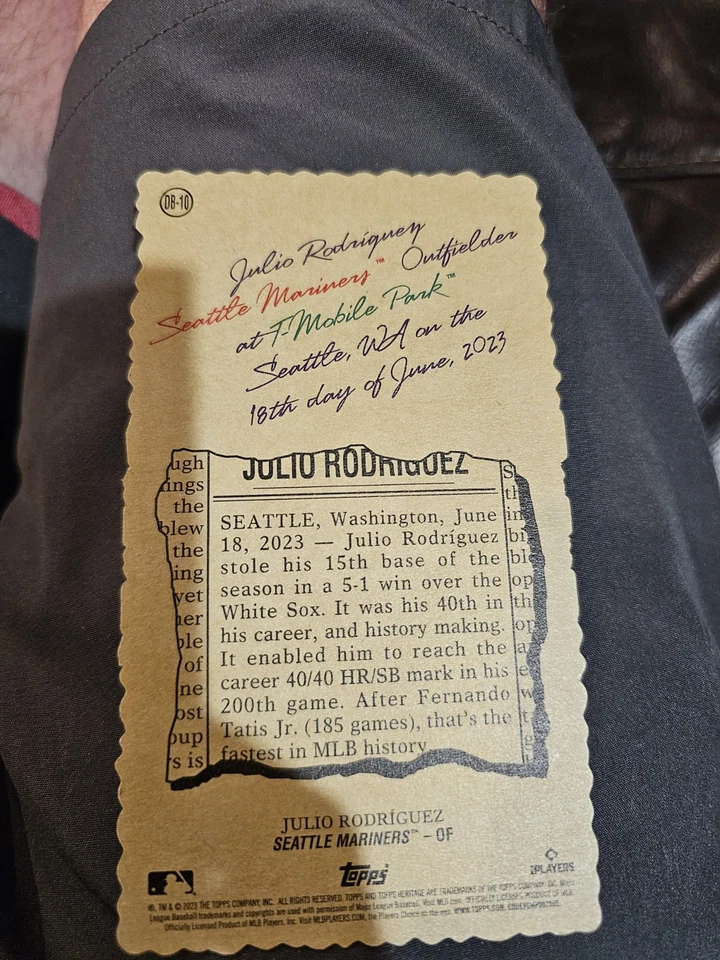 DB-10
Julio Rodríguez
Seattle Mariners™ Outfielder
at T-Mobile Park™
Seattle, WA on the
18th day of June, 2023
JULIO RODRIGUEZ
SEATTLE, Washington, June
18, 2023 — Julio Rodríguez
stole his 15th base of the
season in a 5-1 win over the
White Sox. It was his 40th in
his career, and history making.
It enabled him to reach the
career 40/40 HR/SB mark in his
200th game. After Fernando
Tatis Jr. (185 games), that's the
fastest in MLB history
ugh
ings
the
blew
the
ing
yet
her
ple
of
ne
ost
oup
rs is
JULIO RODRÍGUEZ
SEATTLE MARINERS™ – OF
topps
PLAYERS
®, TM & © 2023 THE TOPPS COMPANY, INC. ALL RIGHTS RESERVED. TOPPS AND TOPPS HERITAGE ARE TRADEMARKS OF THE TOPPS COMPANY, INC. Major
League Baseball trademarks and copyrights are used with permission of Major League Baseball. Visit MLB.com. OFFICIALLY LICENSED PRODUCT OF MLB
Officially Licensed Product of MLB Players, Inc. Visit MLBPLAYERS.COM, the Players Choice on the web. WWW.TOPPS.COM.